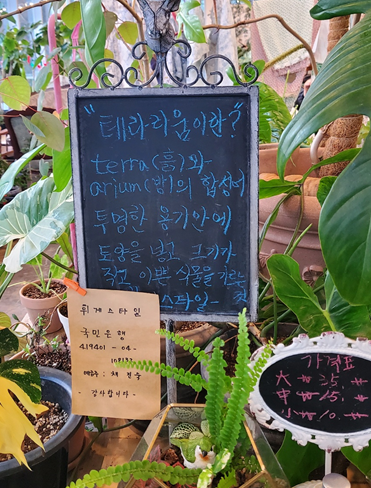 "테라리움이란?"
terra(흙)와
arium(방)의 합성어
투명한 용기안에
토양을 넣고 크기가
작고 이쁜 식물을 기르는
스타일-
휘게스타일
국민은행
419401 - 04 -
108132
예금주 : 채
- 감사합니다 -
가격표
大 ₩ 25. ₩
中 ₩ 15. ₩
小 ₩ 10. ₩